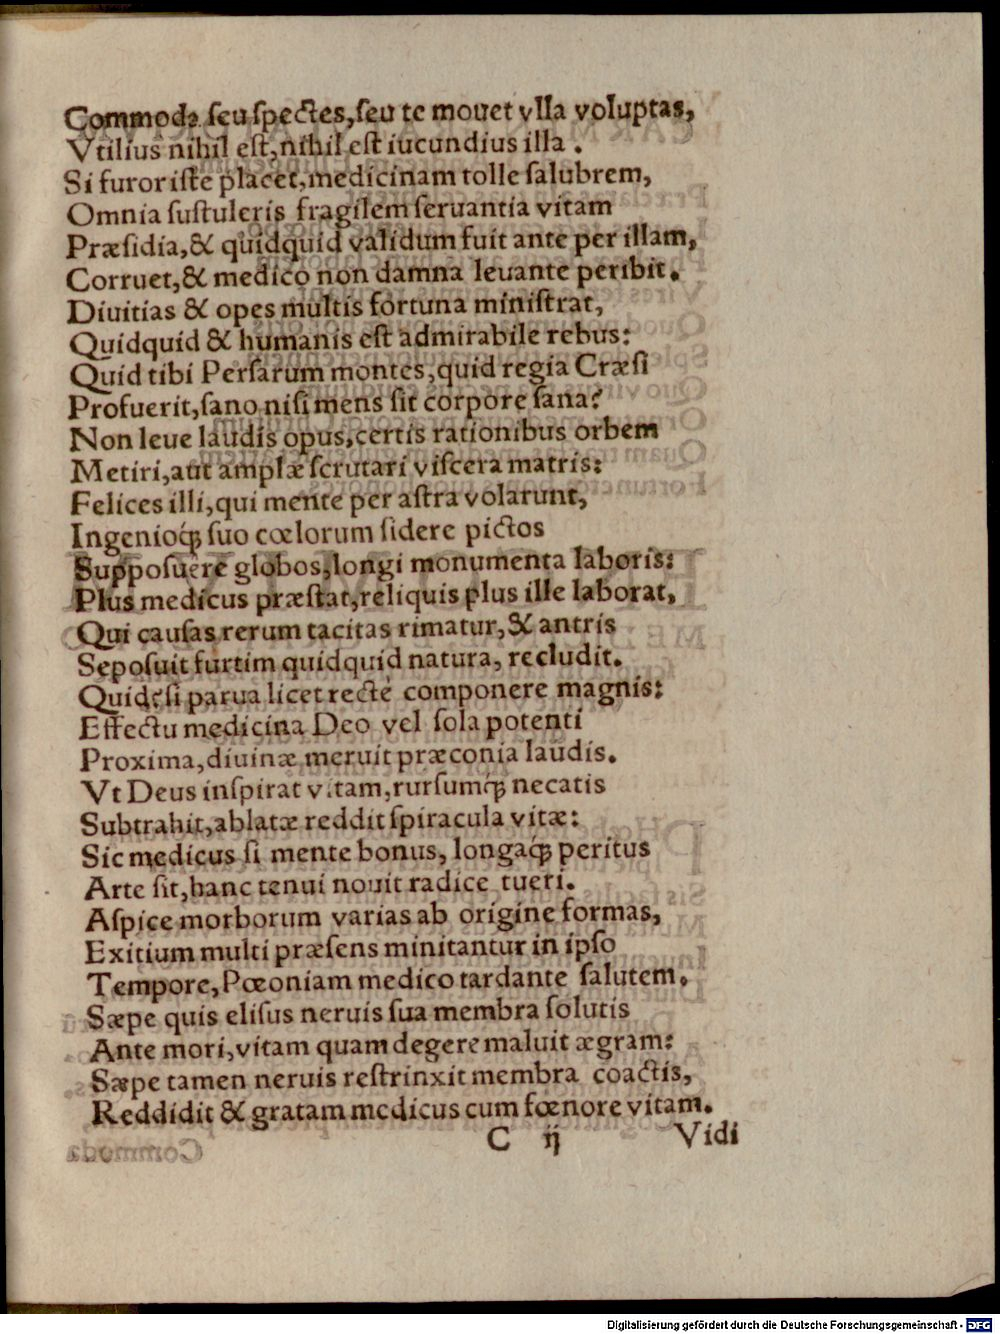 Commoda ſeu ſpectes,ſeu te mouet vlla voluptas,
Vtilius nihil eſt,nihil eſt iucundius illa .
Si furor iſte placet,medicinam tolle ſalubrem,
Omnia ſuſtuleris fragilem ſeruantia vitam
Præſidia,& quidquid validum fuit ante per illam,
Corruet,& medico non damna leuante peribit.
Diuitias & opes multis fortuna miniſtrat,
Quidquid & humanis eſt admirabile rebus:
Quid tibi Perſarum montes,quid regia Cræſi
Profuerit,ſano niſi mens ſit corpore ſana?
Non leue laudis opus,certis rationibus orbem
Metiri,aut amplæ ſcrutari viſcera matris:
Felices illi,qui mente per aſtra volarunt,
Ingenioq́ꝫ ſuo cœlorum ſidere pictos
Suppoſuere globos,longi monumenta laboris:
Plus medicus præſtat,reliquis plus ille laborat,
Qui cauſas rerum tacitas rimatur,& antris
Sepoſuit furtim quidquid natura, recludit.
Quid?ſi parua licet recte componere magnis:
Effectu medicina Deo vel ſola potenti
Proxima,diuinæ meruit præconia laudis.
Vt Deus inſpirat vitam,rurſumq́ꝫ necatis
Subtrahit,ablatæ reddit ſpiracula vitæ:
Sic medicus ſi mente bonus, longaq́ꝫ peritus
Arte ſit,hanc tenui nouit radice tueri.
Aſpice morborum varias ab origine formas,
Exitium multi præſens minitantur in ipſo
Tempore,Pœoniam medico tardante ſalutem.
Sæpe quis eliſus neruis ſua membra ſolutis
Ante mori,vitam quam degere maluit ægram:
Sæpe tamen neruis reſtrinxit membra coactis,
Reddidit & gratam medicus cum fœnore vitam.
C ij Vidi
Digitalisierung gefördert durch die Deutsche Forschungsgemeinschaft - DFG